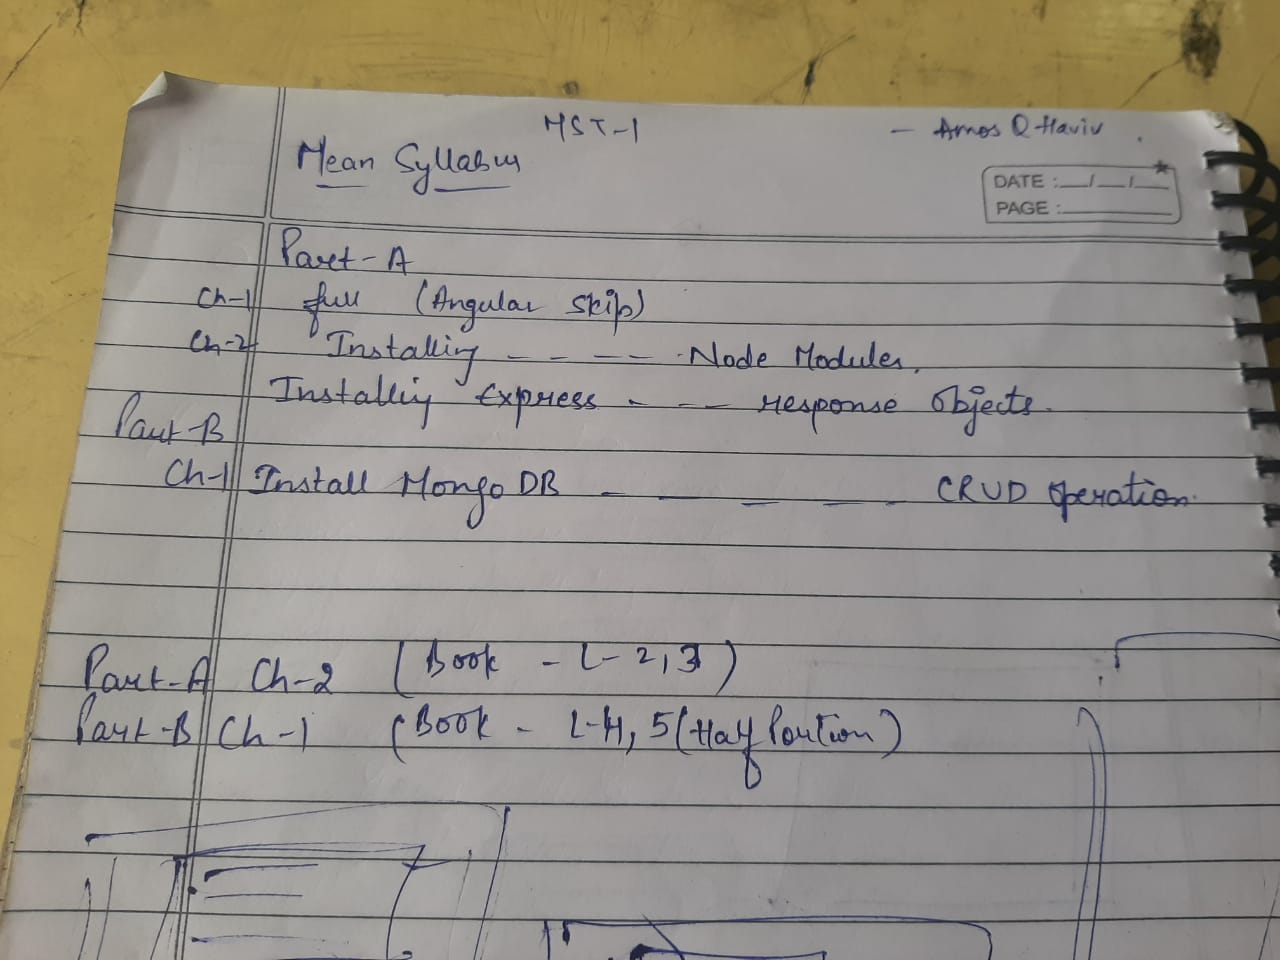 MST-1 - Amos Q Haviv.
Mean Syllabus
DATE :__/__/__
PAGE :
Part-A
Ch-1 full (Angular skip)
Ch-2 Installing - - - - Node Modules.
Installing Express - - - response Objects.
Part-B
Ch-1 Install Mongo DB - - - - - CRUD operation.
Part-A Ch-2 (Book - L-2,3)
Part-B Ch-1 (Book - L-4, 5(Half Portion)